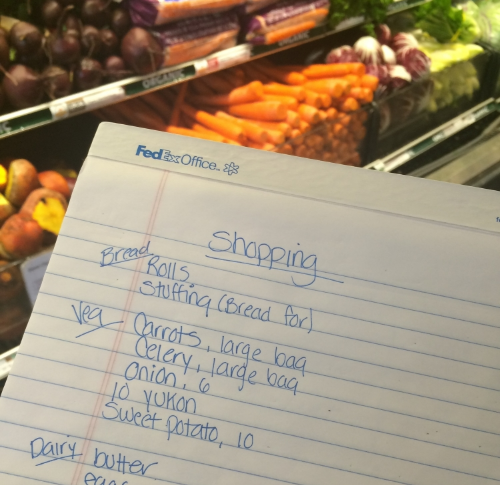 ORGANIC
FedEx Office
Shopping
Bread
Rolls
Stuffing (Bread for)
Veg
Carrots, large bag
Celery, large bag
onion, 6
10 yukon
Sweet potato, 10
Dairy
butter